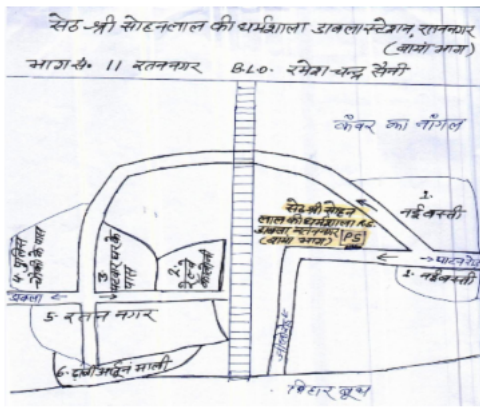 सेठ श्री सोहनलाल की धर्मशाला डाबला स्टेशन, रतननगर
(बायां भाग)
भाग सं. 11 रतननगर B.L.O. रमेश चन्द्र सैनी
कंवर का नांगल
1.
नई बस्ती
सेठ श्री सोहन
लाल की धर्मशाला R.S.
डाबला रतननगर
(बायां भाग) PS
1. नई बस्ती
4. पुलिस
चौकी के पास
3. पटवार घर के
पास
2. रेल्वे
कालोनी
डाबला
5. रतन नगर
6. ढाणी माली